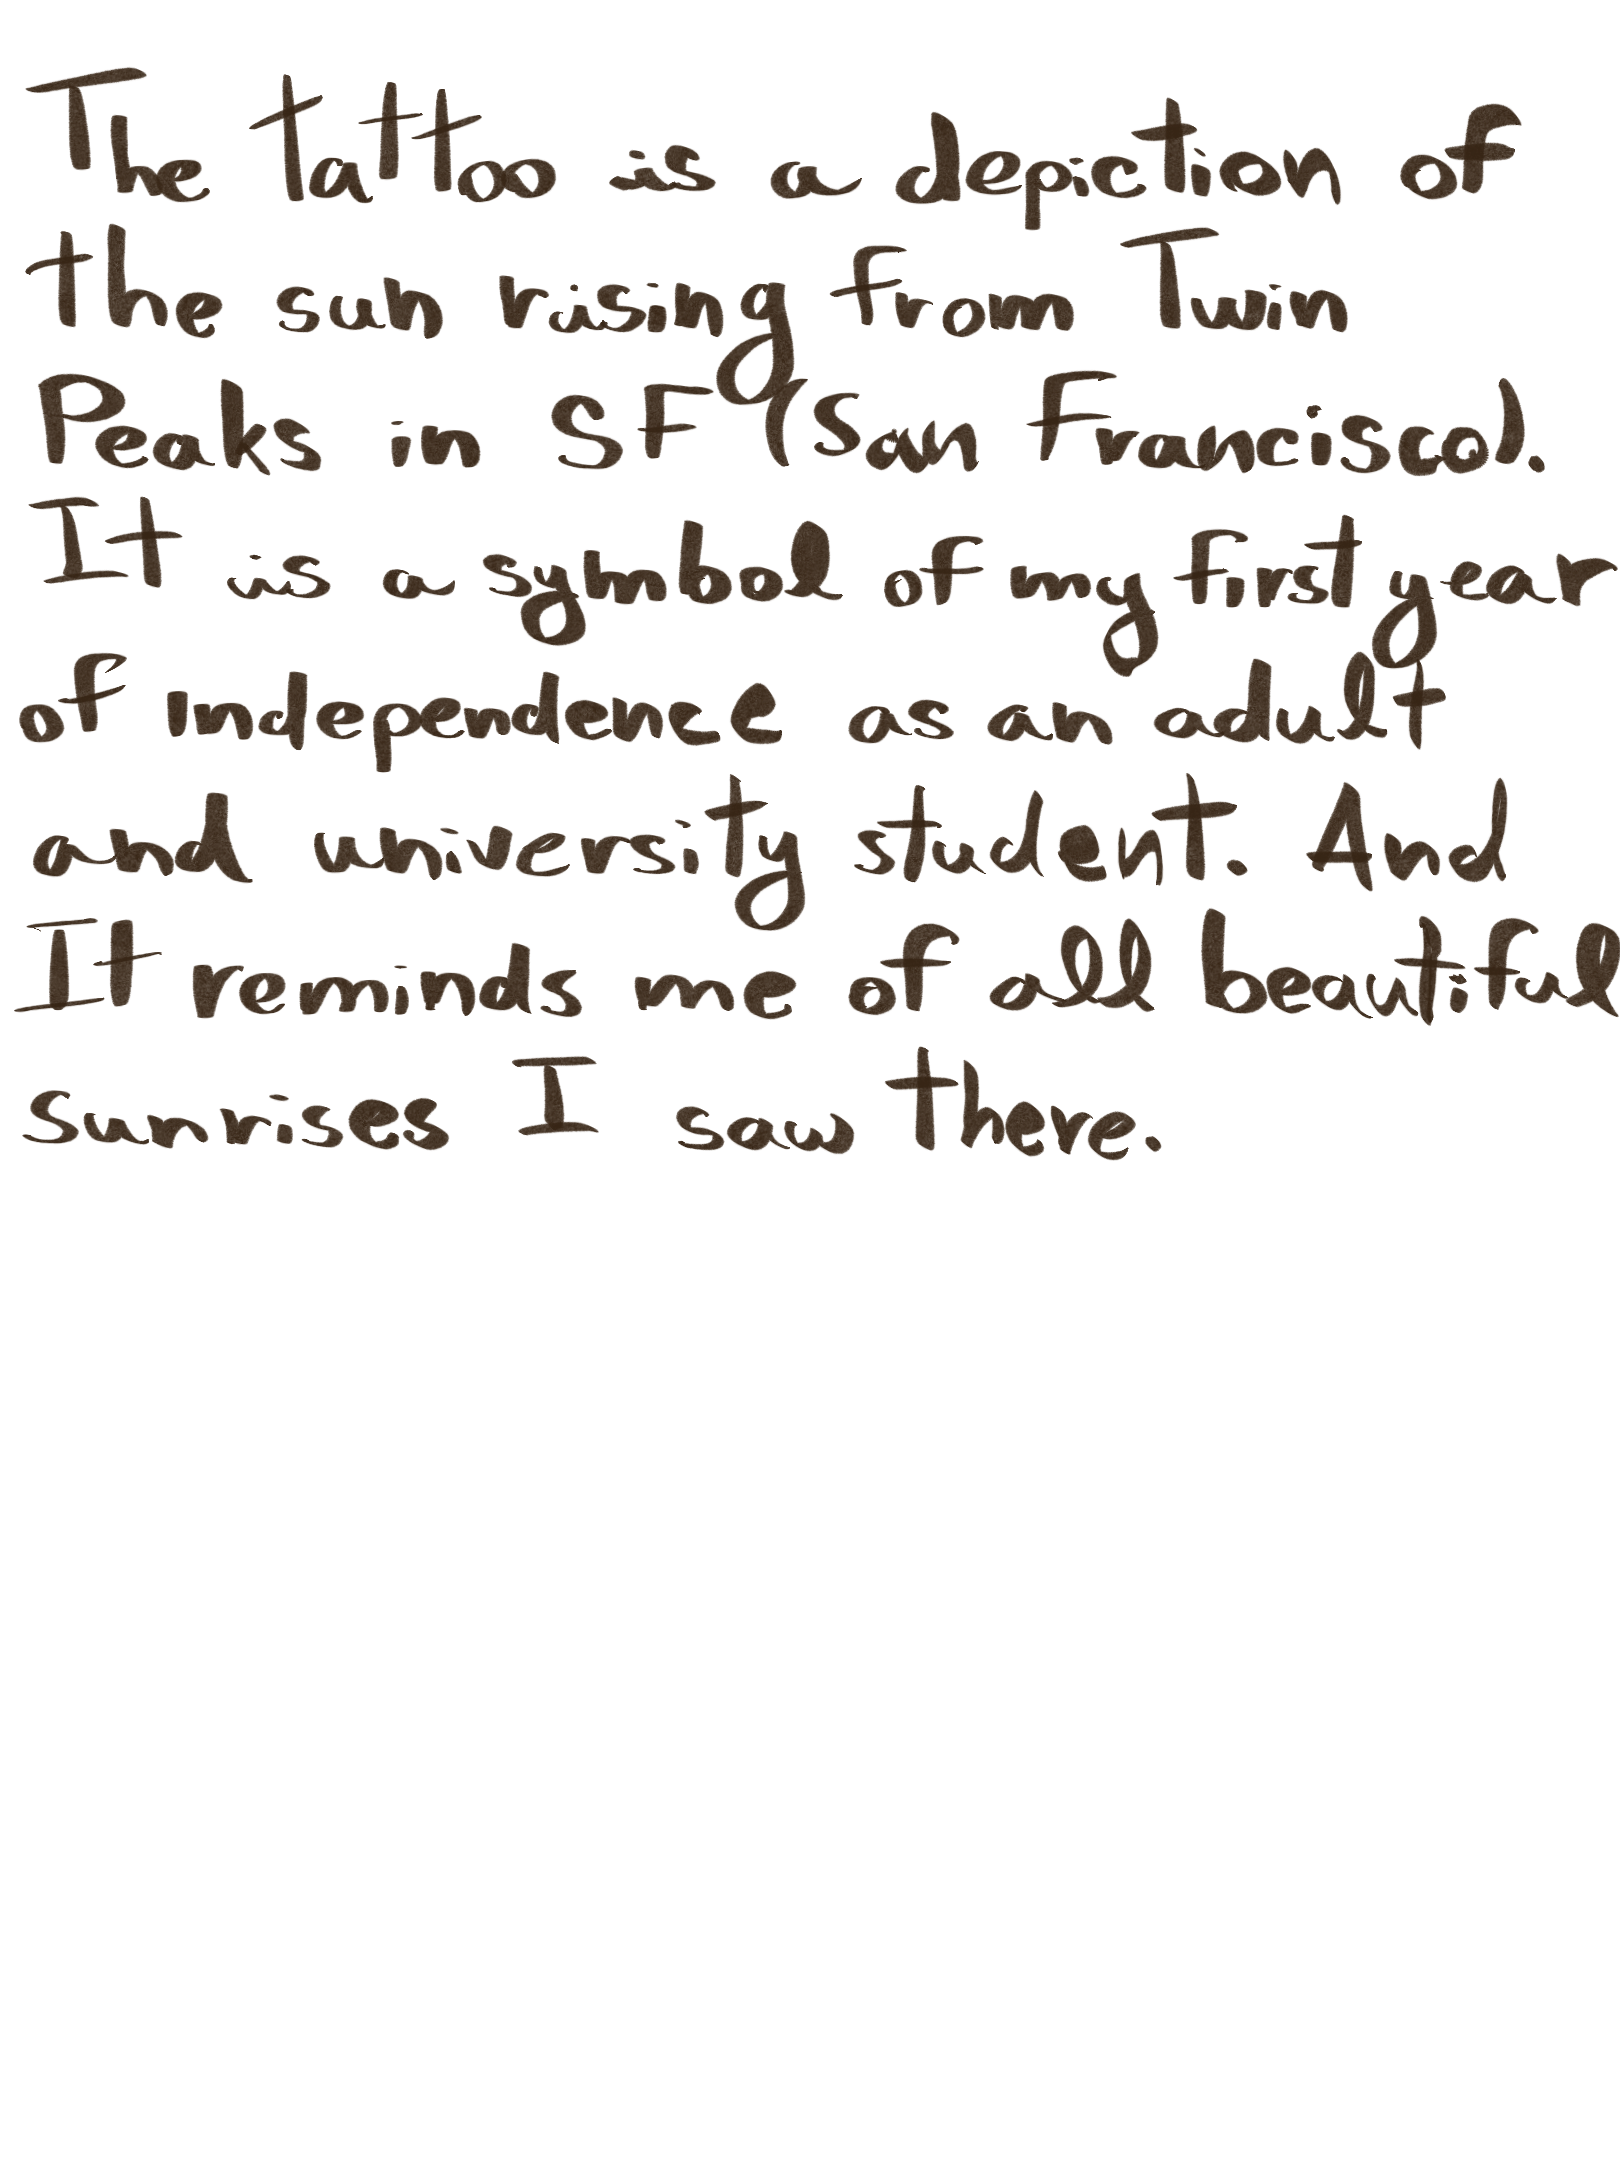 The tattoo is a depiction of
the sun rising from Twin
Peaks in SF (San Francisco).
It is a symbol of my first year
of independence as an adult
and university student. And
It reminds me of all beautiful
sunrises I saw there.